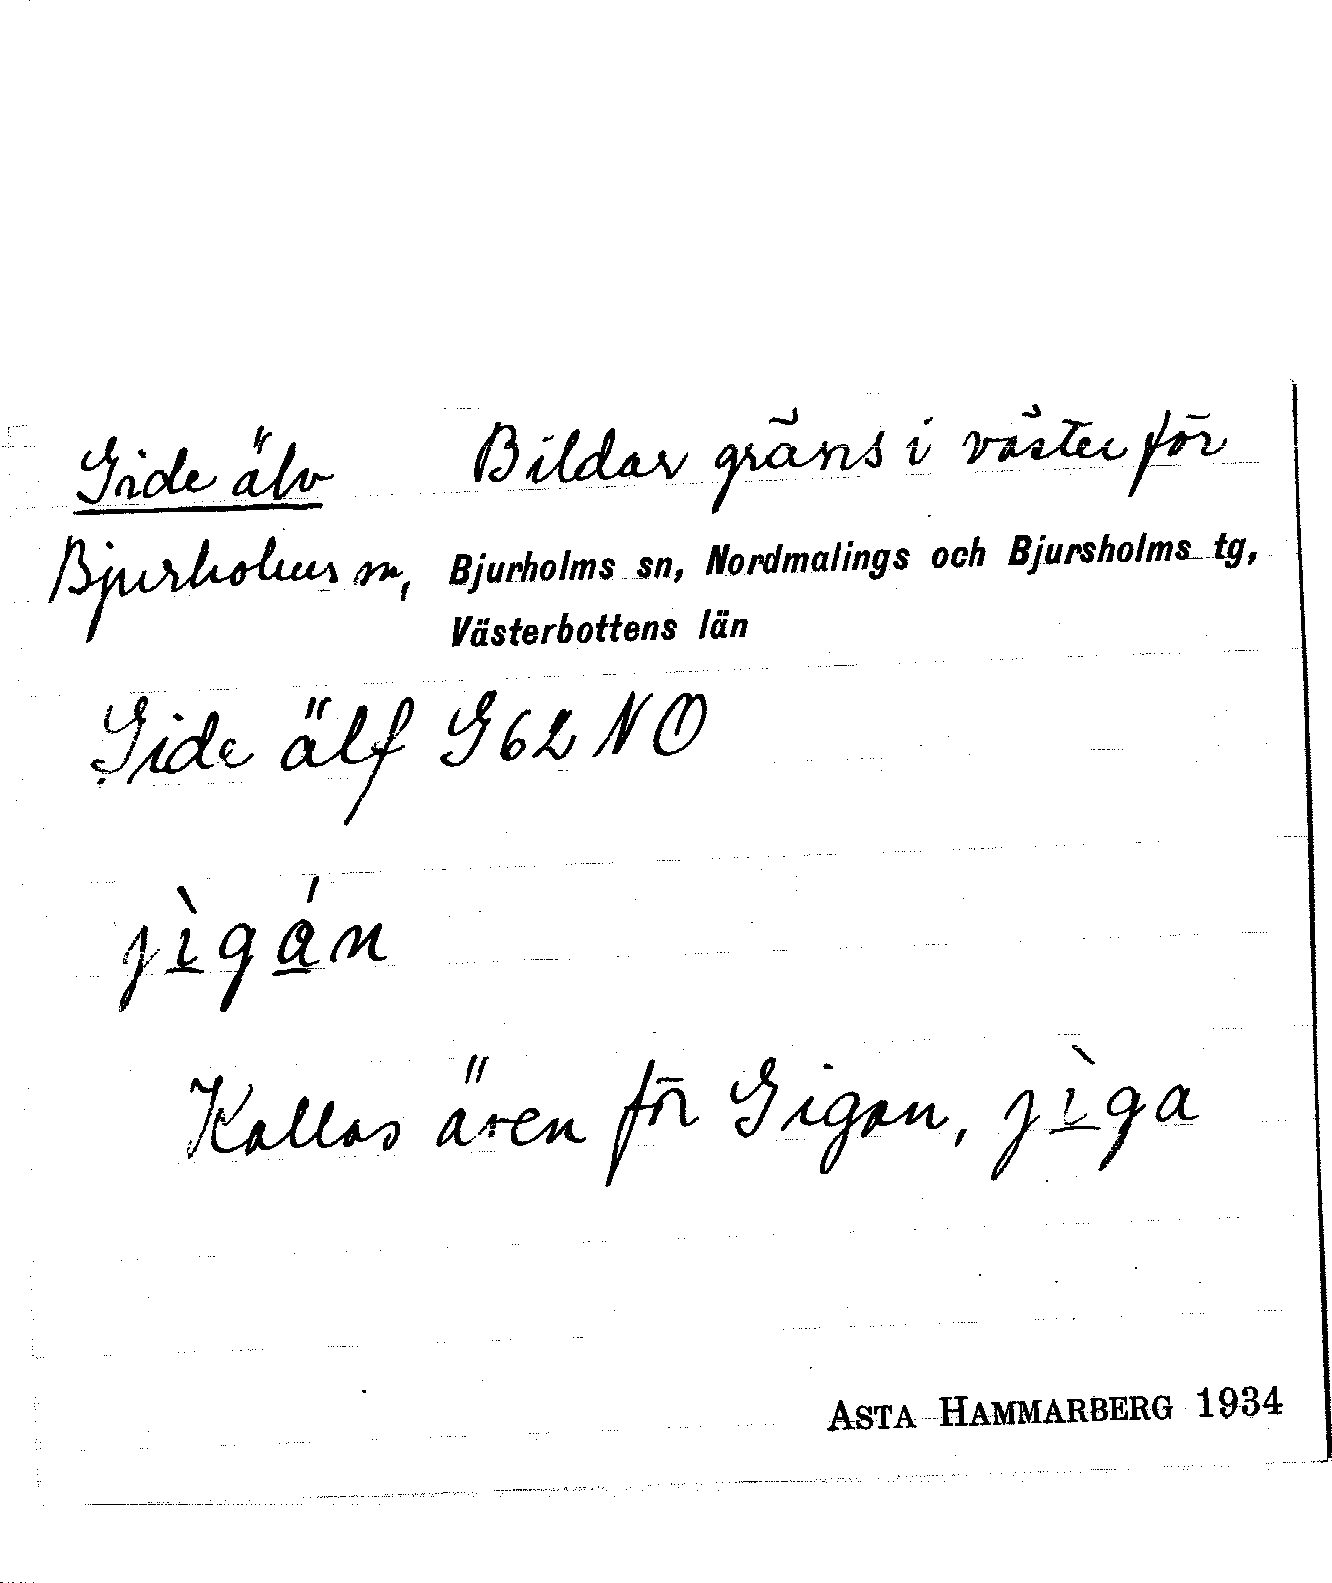 Gide älv Bildar gräns i väster för
Bjurholms sn, Bjurholms sn, Nordmalings och Bjursholms tg,
Västerbottens län
Gide älf G62 NO
jìgán
Kallas även för Gigan, jìga
ASTA HAMMARBERG 1934